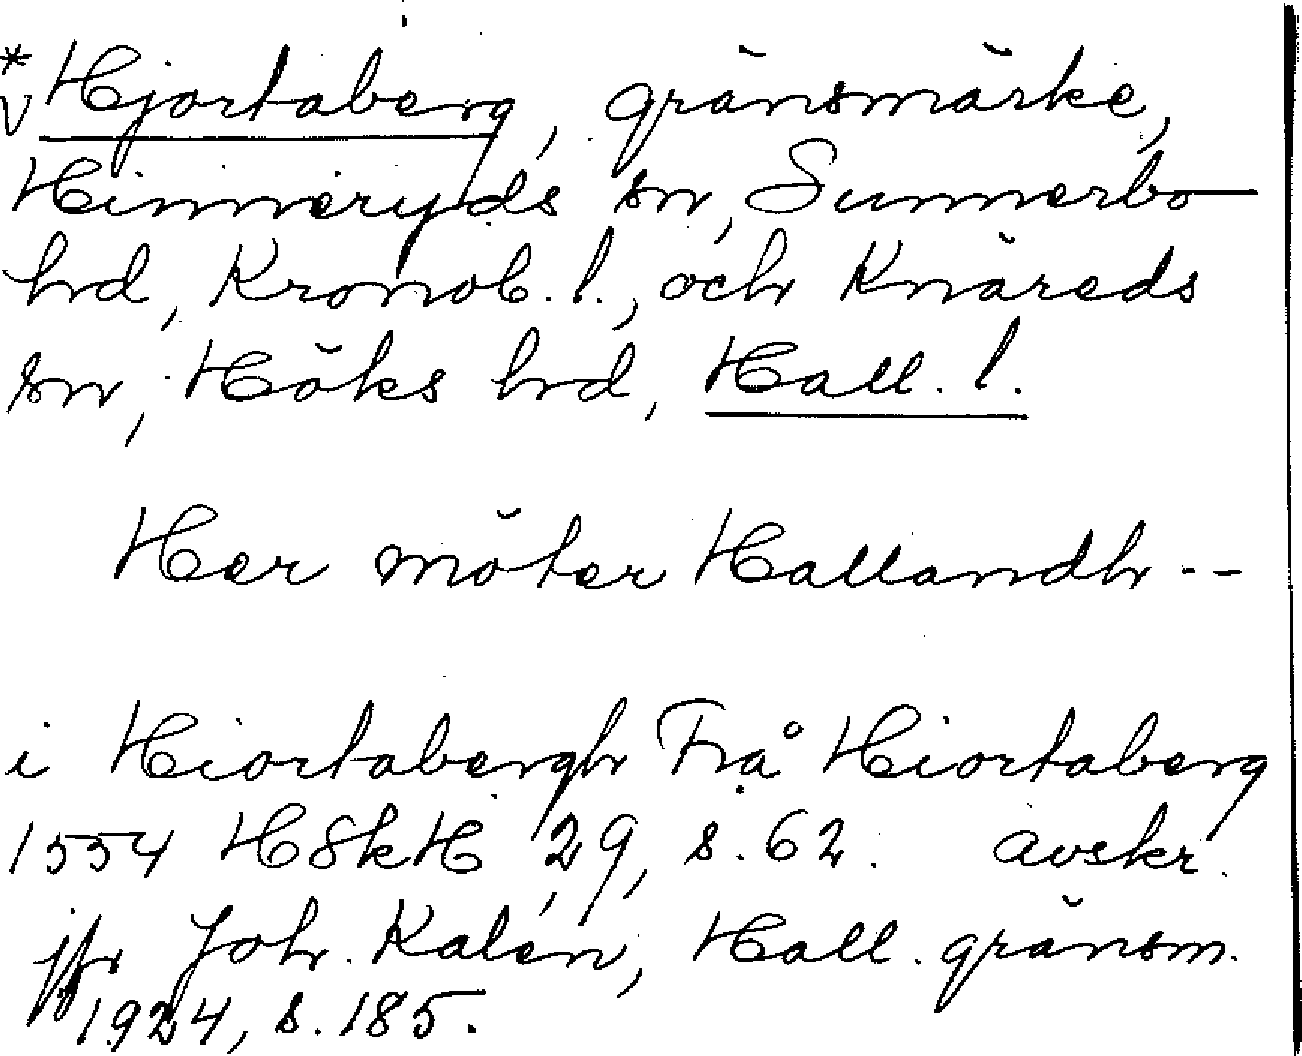 * v Hjortaberg, gränsmärke,
Hinneryds sn, Sunnerbo
hd, Kronob. l., och Knäreds
sn, Höks hd, Hall. l.
Her möter Hallandh --
i Hiortabergh Frå Hiortaberg
1554 HSkH 29, s. 62. avskr.
jfr Joh. Kalén, Hall. gränsm.
1924, s. 185.